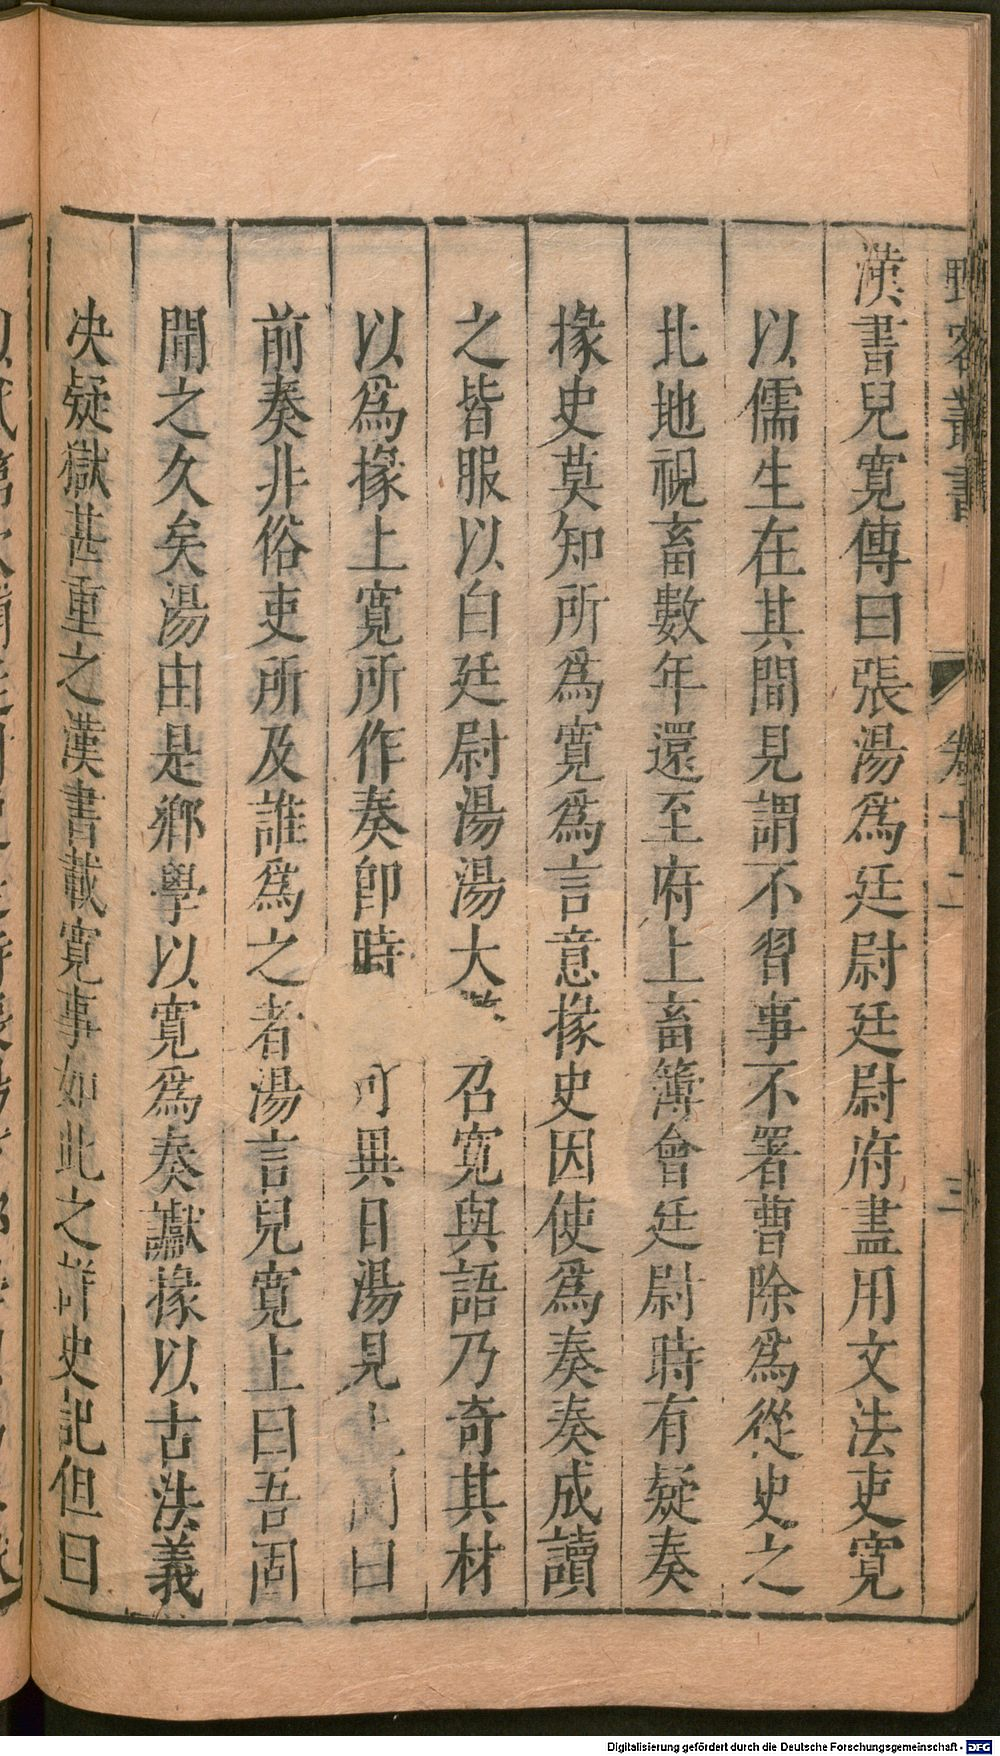 野客叢書
卷十二
三
漢書兒寬傳曰張湯爲廷尉廷尉府盡用文法吏寬
以儒生在其間見謂不習事不署曹除爲從史之
北地視畜數年還至府上畜簿會廷尉時有疑奏
掾史莫知所爲寬爲言意掾史因使爲奏奏成讀
之皆服以白廷尉湯湯大 召寬與語乃奇其材
以爲掾上寬所作奏卽時 可異日湯見上問曰
前奏非俗吏所及誰爲之者湯言兒寬上曰吾固
聞之久矣湯由是鄉學以寬爲奏讞掾以古法義
决疑獄甚重之漢書載寬事如此之詳史記但曰
Digitalisierung gefördert durch die Deutsche Forschungsgemeinschaft - DFG